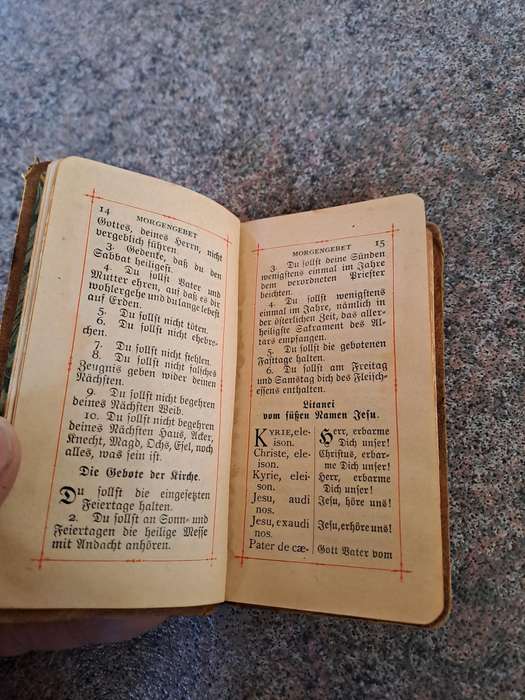 14
MORGENGEBET
Gottes, deines Herrn, nicht
vergeblich führen.
3. Gedenke, daß du den
Sabbat heiligest.
4. Du sollst Vater und
Mutter ehren, auf daß es dir
wohlergehe und du lange lebest
auf Erden.
5. Du sollst nicht töten.
6. Du sollst nicht ehebre-
chen.
7. Du sollst nicht stehlen.
8. Du sollst nicht falsches
Zeugnis geben wider deinen
Nächsten.
9. Du sollst nicht begehren
deines Nächsten Weib.
10. Du sollst nicht begehren
deines Nächsten Haus, Acker,
Knecht, Magd, Ochs, Esel, noch
alles, was sein ist.
Die Gebote der Kirche.
Du sollst die eingesetzten
Feiertage halten.
2. Du sollst an Sonn- und
Feiertagen die heilige Messe
mit Andacht anhören.
MORGENGEBET
15
3. Du sollst deine Sünden
wenigstens einmal im Jahre
dem verordneten Priester
beichten.
4. Du sollst wenigstens
einmal im Jahre, nämlich in
der österlichen Zeit, das aller-
heiligste Sakrament des Al-
tars empfangen.
5. Du sollst die gebotenen
Fasttage halten.
6. Du sollst am Freitag
und Samstag dich des Fleisch-
essens enthalten.
Litanei
vom süßen Namen Jesu.
KYRIE, ele-
ison.
Christe, ele-
ison.
Kyrie, elei-
son.
Jesu, audi
nos.
Jesu, exaudi
nos.
Pater de cæ-
Herr, erbarme
Dich unser!
Christus, erbar-
me Dich unser!
Herr, erbarme
Dich unser!
Jesu, höre uns!
Jesu, erhöre uns!
Gott Vater vom